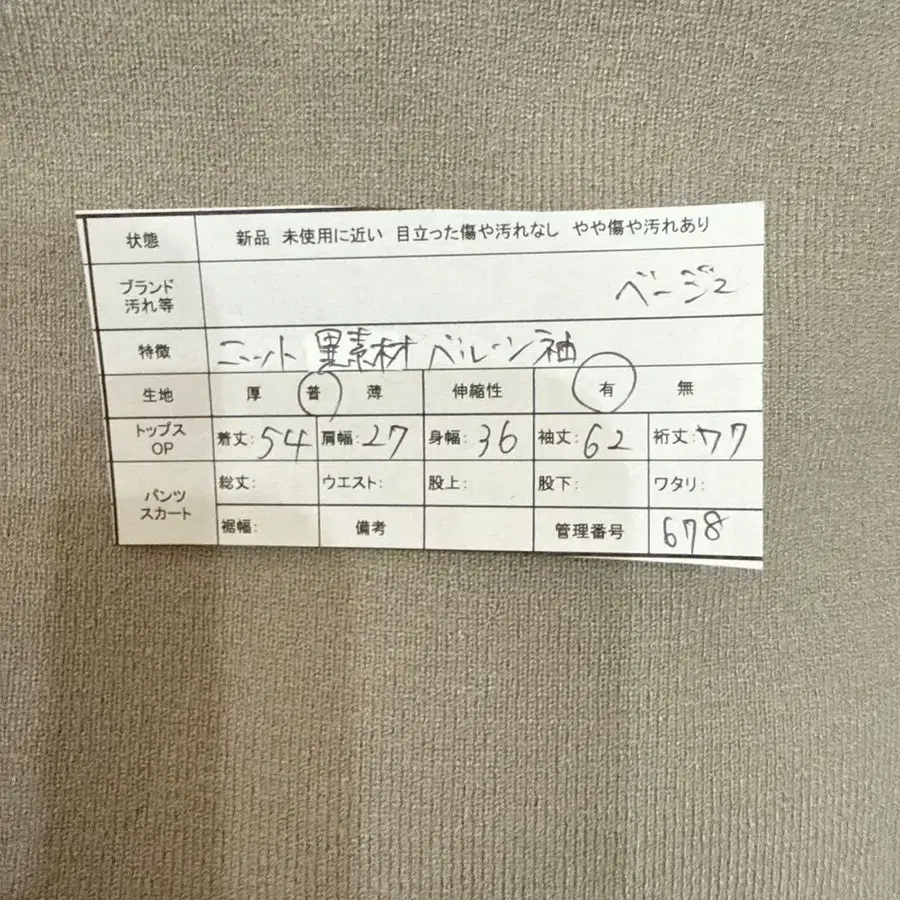 状態 新品 未使用に近い 目立った傷や汚れなし やや傷や汚れあり
ブランド
汚れ等 ベージュ
特徴 ニット 異素材 バルーン袖
生地 厚 普 薄 伸縮性 有 無
トップス
OP 着丈:54 肩幅:27 身幅:36 袖丈:62 裄丈:77
パンツ
スカート 総丈: ウエスト: 股上: 股下: ワタリ:
裾幅: 備考 管理番号 678